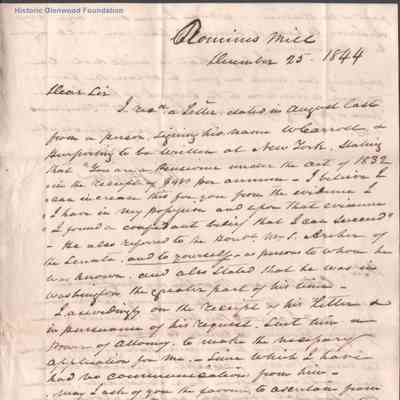 Historic Glenwood Foundation
Romines Mill
December 25 - 1844
Dear Sir
I recd. a Letter, dated in August Last
from a person, signing his name W Carroll, &
purporting to be written at New York, Stating
that "You are a Pensioner under the act of 1832
in the receipt of per annum - I believe I
can increase this for you from the evidence I
I have in my possession and upon that evidence
I found a confident belief that I can succeed"
- He also refered to the Mr. S. Archer of
the Senate, and to yourself - as persons to whom he
was known, and also Stated that he was in
Washington the greater part of his time -
I accordingly on the receipt of his Letter &
in pursuance of his request, Sent him a
Power of Attorney, to make the necessary
application for me. - Since which I have
had no communication from him -
may I ask of you the favour to ascertain from